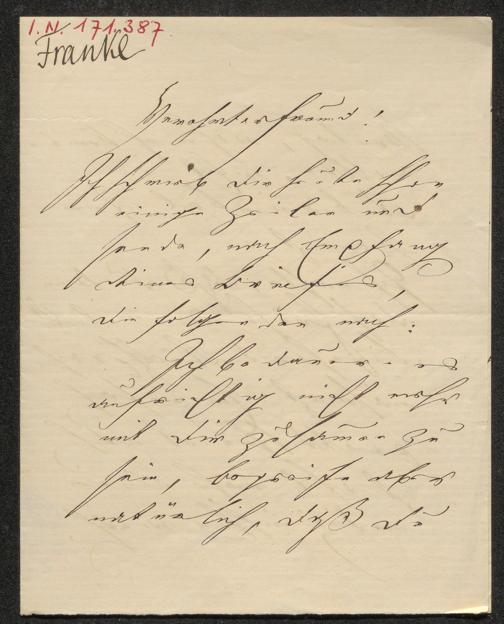 I.N. 171.387
Frankl
Verehrter Freund!
Ich schrieb Dir heute schon
einige Zeilen und
sende, nach Empfang
Deines Briefes,
die folgenden nach:
Ich bedauere es
aufrichtig nicht mehr
mit Dir zusammen zu
sein, begreife aber
natürlich, daß Du